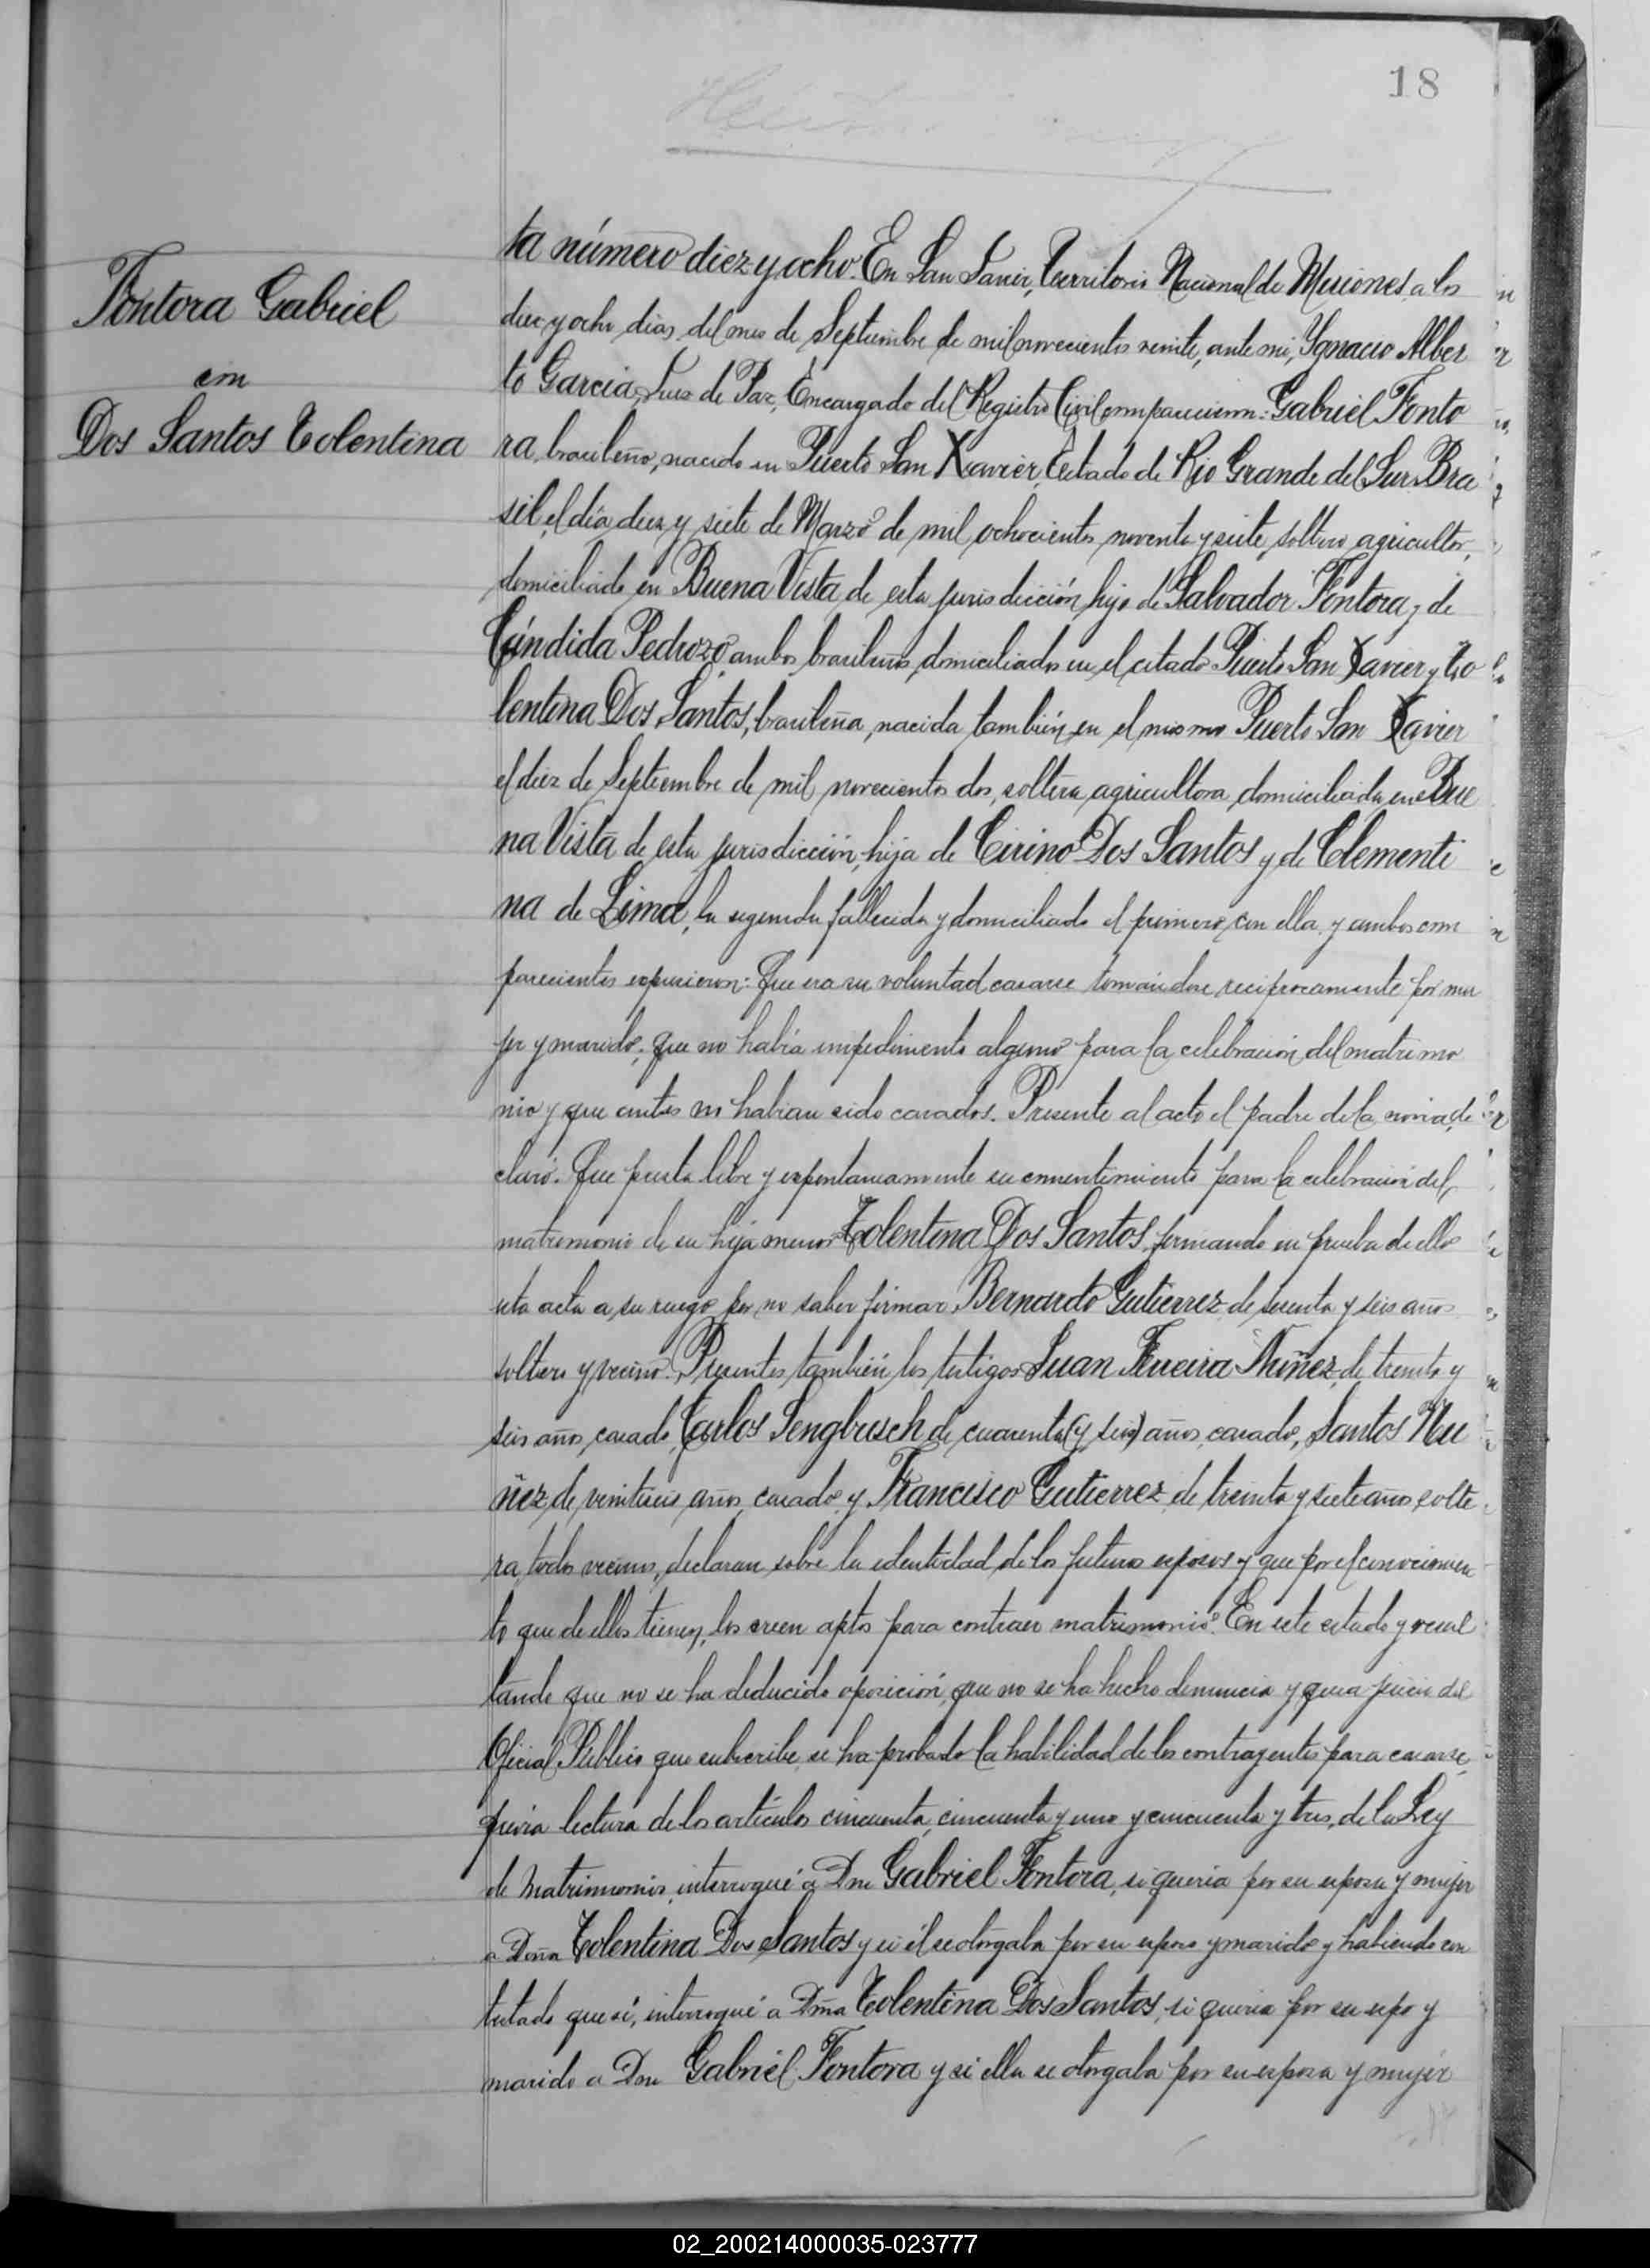 18
Fontora Gabriel
con
Dos Santos Tolentina
ta número diez y ocho. En San Javier, Territorio Nacional de Misiones, a los
diez y ocho dias del mes de Septiembre de mil novecientos veinte, ante mi, Ygnacio Alber
to Garcia, Juez de Paz, Encargado del Registro Civil comparecieron: Gabriel Fonto
ra, brasileño, nacido en Puerto San Xavier, Estado de Rio Grande del Sur, Bra
sil, el día diez y siete de Marzo de mil ochocientos noventa y siete, soltero, agricultor,
domiciliado en Buena Vista de esta jurisdicción, hijo de Salvador Fontora y de
Cándida Pedrozo, ambos brasileños, domiciliados en el citado Puerto San Xavier y To
lentina Dos Santos, brasileña, nacida también en el mismo Puerto San Xavier
el diez de Septiembre de mil novecientos dos, soltera, agricultora, domiciliada en Bue
na Vista de esta jurisdicción, hija de Cirino Dos Santos y de Clementi
na de Lima, la segunda fallecida y domiciliado el primero con ella y ambos com
parecientes expusieron: Que era su voluntad casarse tomándose reciprocamente por mu
jer y marido; que no había impedimento alguno para la celebración del matrimo
nio y que antes no habian sido casados. Presente al acto el padre de la novia, de
claró: Que presta libre y espontaneamente su consentimiento para la celebración del
matrimonio de su hija menor Tolentina Dos Santos, firmando en prueba de ello
esta acta a su ruego por no saber firmar Bernardo Gutierrez de sesenta y seis años
soltero y vecino. Presentes también los testigos Juan Ferreira Núñez, de treinta y
seis años, casado, Carlos Sengbusch de cuarenta (y seis) años, casado, Santos Nu
ñez, de veintiseis años, casado y Francisco Gutierrez, de treinta y siete años, solte
ra, todos vecinos, declaran sobre la identidad de los futuros esposos y que por el conocimien
to que de ellos tienen, los creen aptos para contraer matrimonio. En este estado y resul
tando que no se ha deducido oposición, que no se ha hecho denuncia y que a juicio del
Oficial Público que subscribe, se ha probado la habilidad de los contrayentes para casarse,
previa lectura de los artículos cincuenta, cincuenta y uno y cincuenta y tres, de la Ley
de Matrimonio, interrogué a Don Gabriel Fontora, si queria por su esposa y mujer
a Doña Tolentina Dos Santos y si él se otorgaba por su esposo y marido y habiendo con
testado que sí, interrogué a Dña Tolentina Dos Santos, si queria por su espo y
marido a Don Gabriel Fontora y si ella se otorgaba por su esposa y mujer
02_200214000035-023777